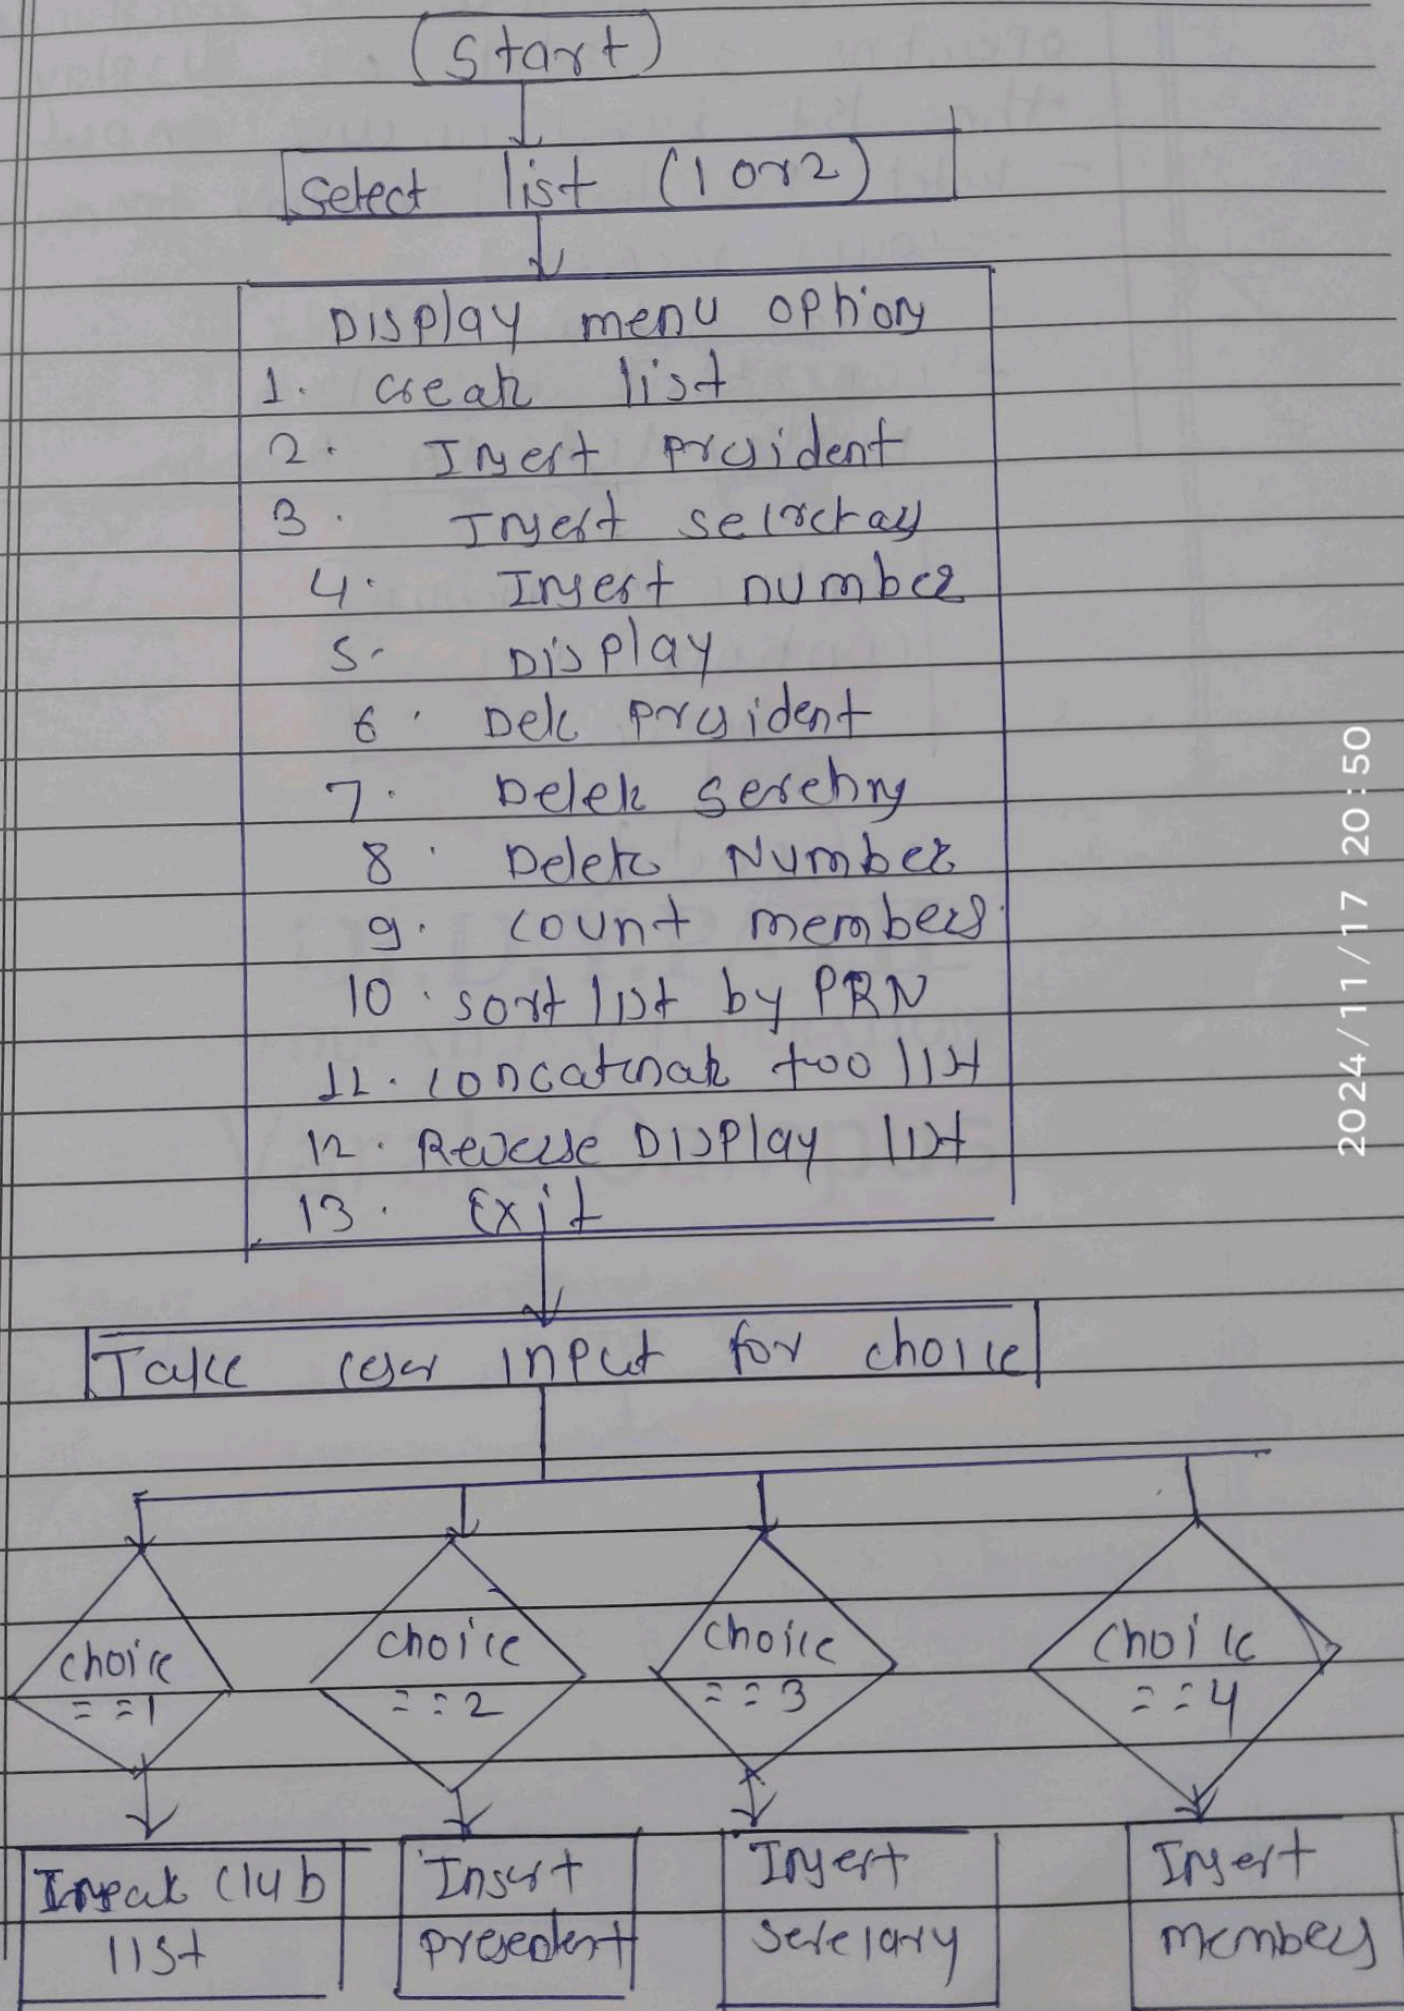 (Start)
Select list (1 or 2)
Display menu option
1. Create list
2. Insert president
3. Insert secretary
4. Insert number
5. Display
6. Dele president
7. Delete secretary
8. Delete Number
9. count members
10. sort list by PRN
11. concatenate too list
12. Reverse Display list
13. Exit
Take user input for choice
choice
==1
choice
==2
choice
==3
choice
==4
club
list
Insert
president
Insert
secretary
Insert
members
2024/11/17 20:50